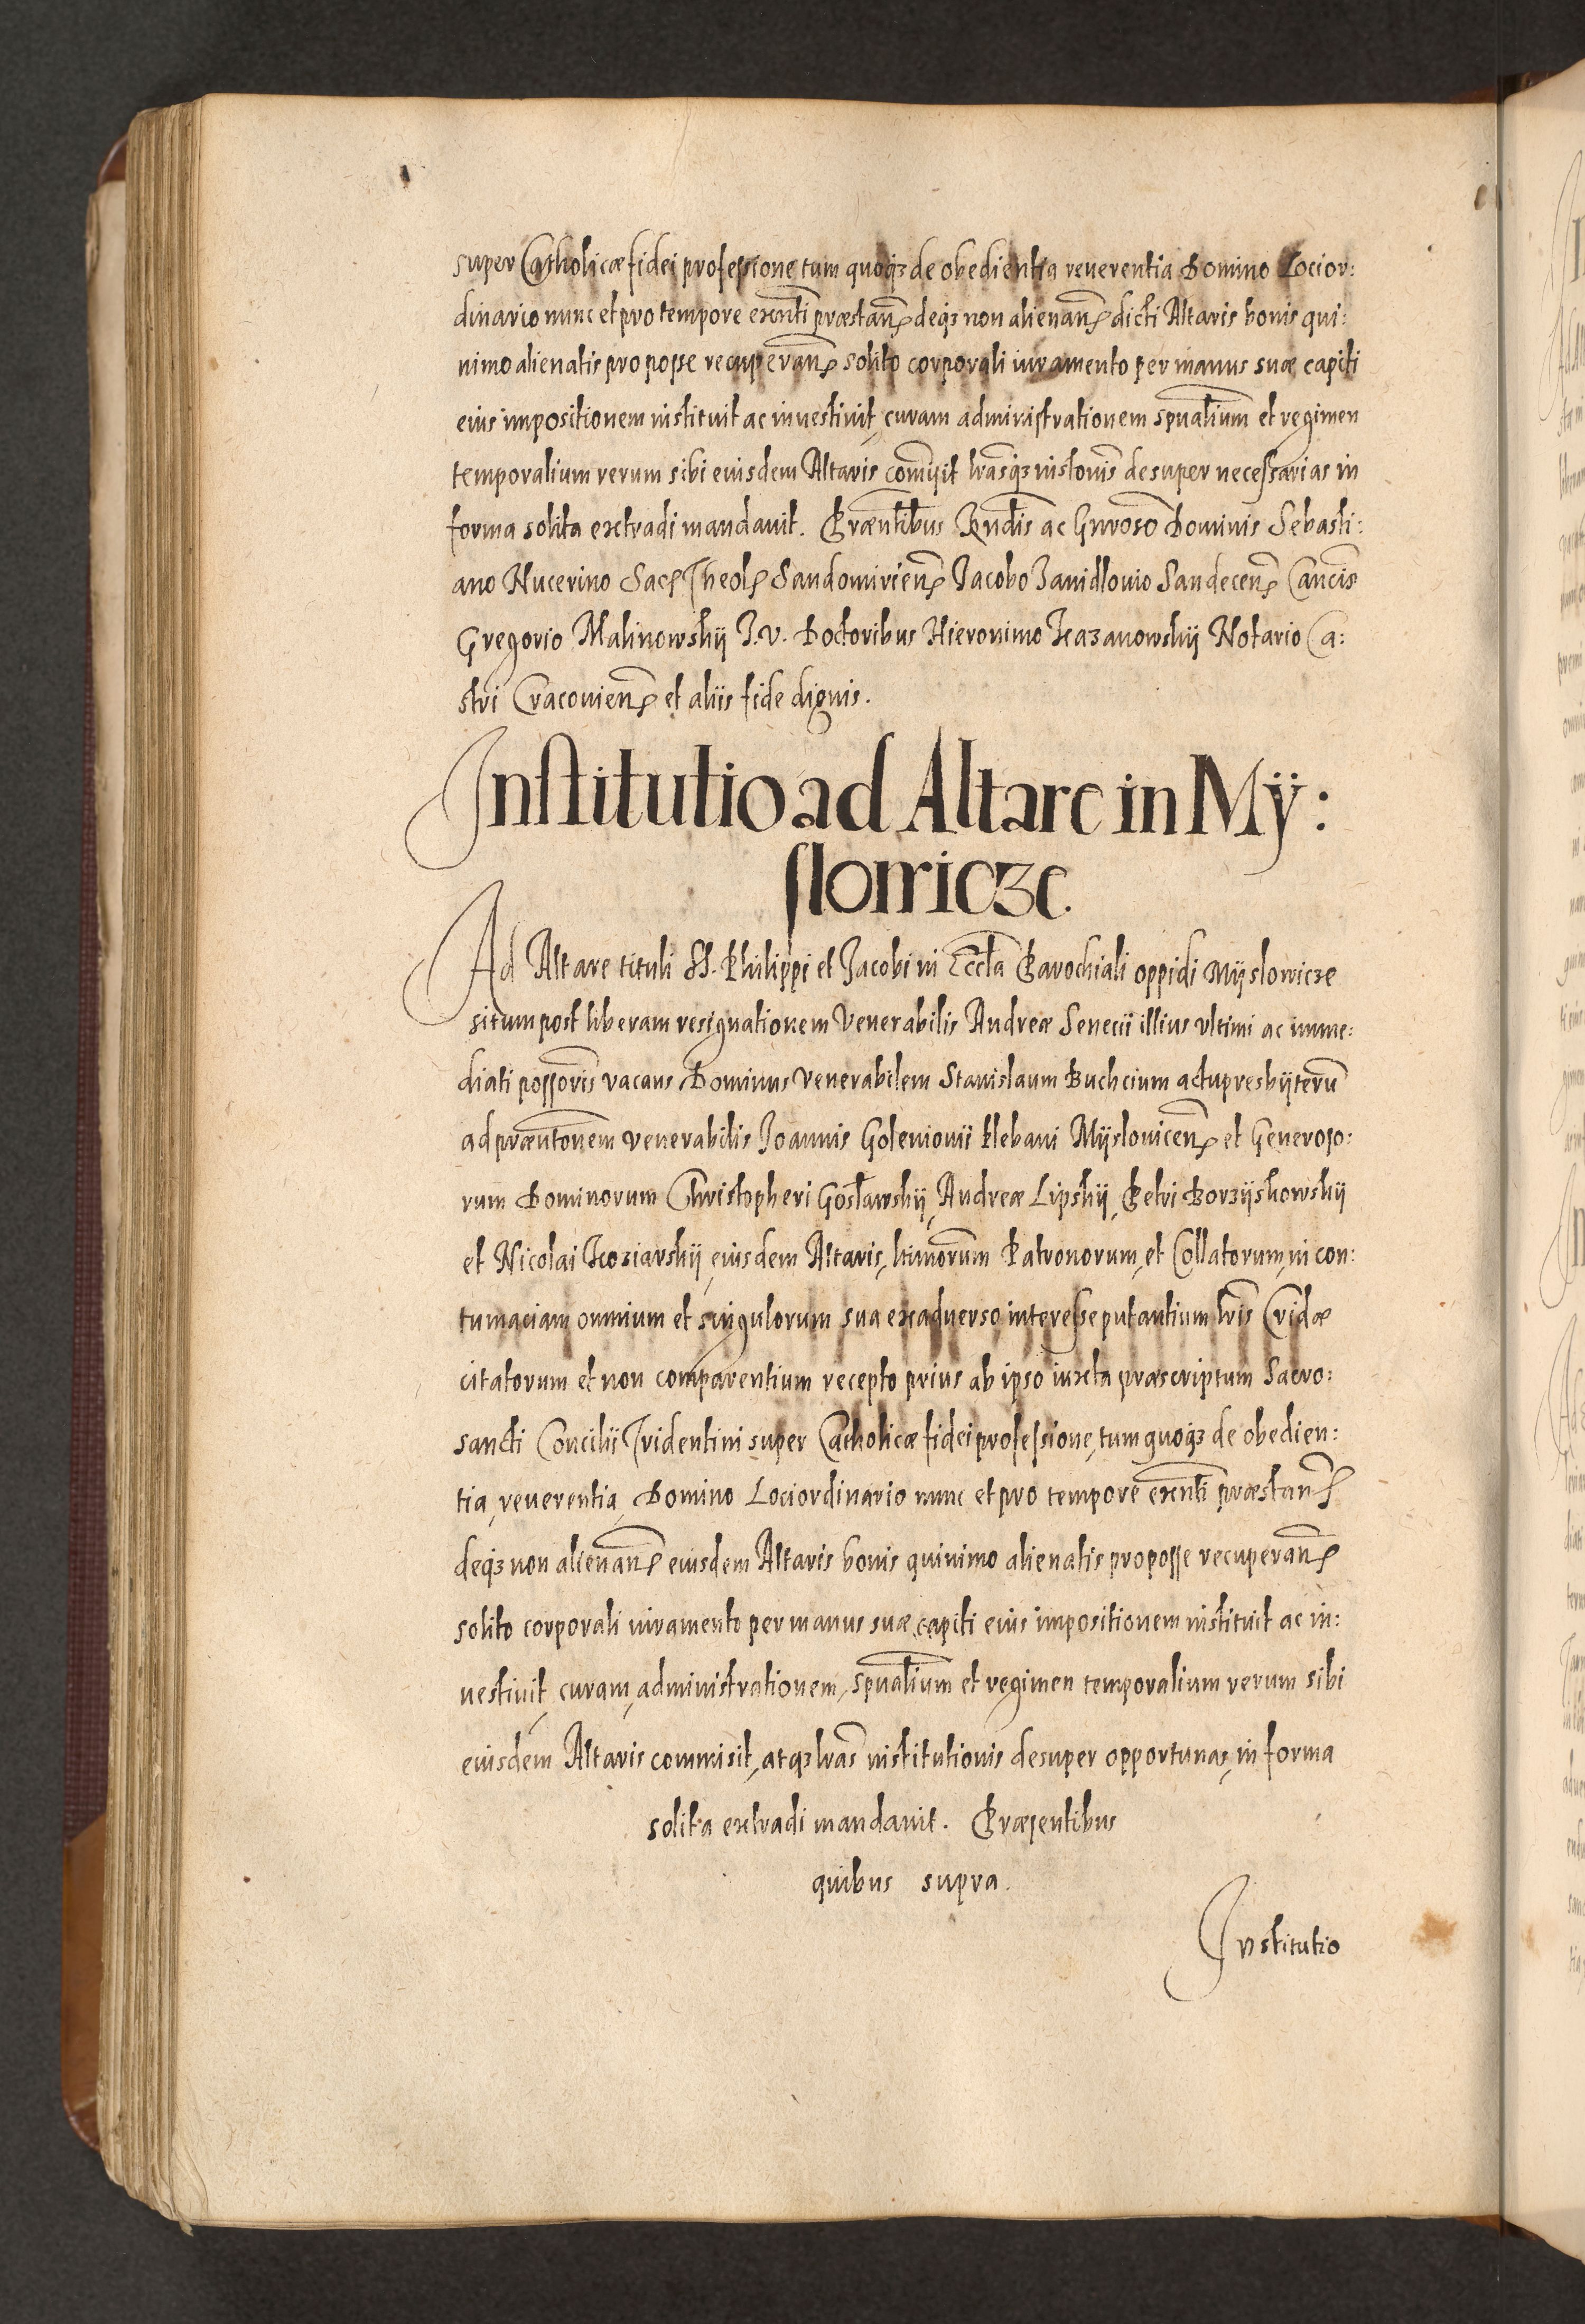 super Catholicæ fidei professione tum quoq3 de obedientia reuerentia Domino Locior:
dinario nunc et pro tempore exenti præstan deq3 non alienan dicti Altaris bonis qui:
nimo alienatis pro posse recuperan solito corporali iuramento per manus suæ capiti
eius impositionem instituit ac inuestiuit, curam administrationem spualium et regimen
temporalium rerum sibi eiusdem Altaris comisit lrasq3 instonis desuper necessarias in
forma solita extradi mandauit. Præntibus Rndis ac Gnroso Dominis Sebasti:
ano Nucerino Sac Theol Sandomirien Jacobo Janidlouio Sandecen Cancis
Gregorio Malinowskÿ J.V. Doctoribus Hieronimo Kazanowskÿ Notario Ca:
stri Cracouien et aliis fide dignis.
Institutio ad Altare in Mÿ:
slowicze.
Ad Altare tituli SS. Philippi et Jacobi in Eccla Parochiali oppidi Mÿslowicze
situm post liberam resignationem Venerabilis Andreæ Senecii illius vltimi ac imme:
diati possoris vacans Dominus Venerabilem Stanislaum Buchcium actu presbÿteru
ad præntonem venerabilis Joannis Goleniouii plebani Mÿslouicen et Generoso:
rum Dominorum Christopheri Gosławskÿ, Andreæ Lipskÿ, Petri Borzÿskowskÿ
et Nicolai Koziarskÿ, eiusdem Altaris, ltimorum Patronorum, et Collatorum, in con:
tumaciam omnium et singulorum sua ex aduerso interesse putantium lris Cridæ
citatorum et non comparentium recepto prius ab ipso iuxta præscriptum Sacro:
sancti Concilii Tridentini super Catholicæ fidei professione, tum quoq3 de obedien:
tia, reuerentia, Domino Lociordinario nunc et pro tempore exenti præstan
deq3 non alienan eiusdem Altaris bonis quinimo alienatis pro posse recuperan
solito corporali iuramento per manus suæ capiti eius impositionem instituit ac in:
uestiuit, curam, administrationem, spualium et regimen temporalium rerum sibi
eiusdem Altaris commisit, atq3 lras institutionis desuper opportunas, in forma
solita extradi mandauit. Præsentibus
quibus supra.
Institutio